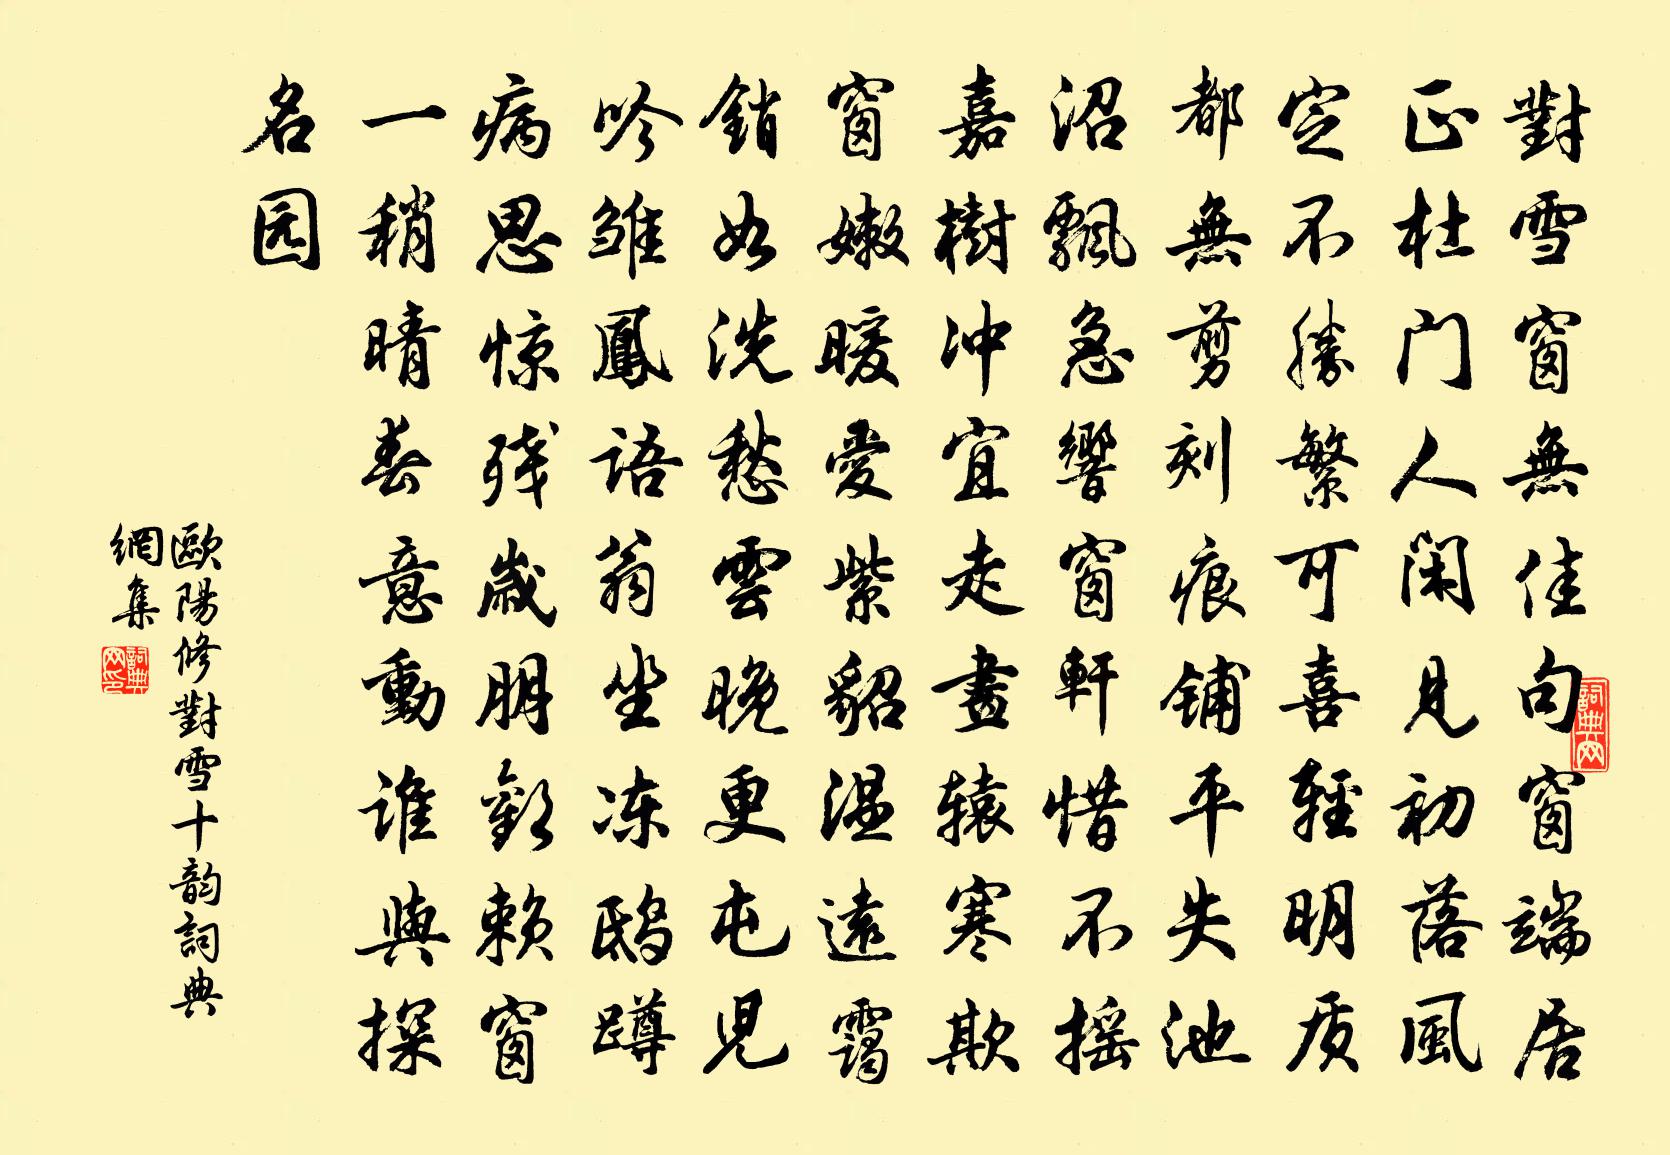 對雪窗無佳句窗端居
正杜门人闲見初落風
定不勝繁可喜輕明质
都無剪刻痕铺平失池
沼飄急響窗軒惜不摇
嘉樹冲宜走畫辕寒欺
窗嫩暖愛紫貂温遠靄
銷如洗愁雲晚更屯児
吟雏鳳語翁坐冻鴟蹲
病思惊残歲朋歡赖窗
一稍晴春意動谁與探
名园
歐陽修對雪十韵詞典
網集
詞典网
詞典网印